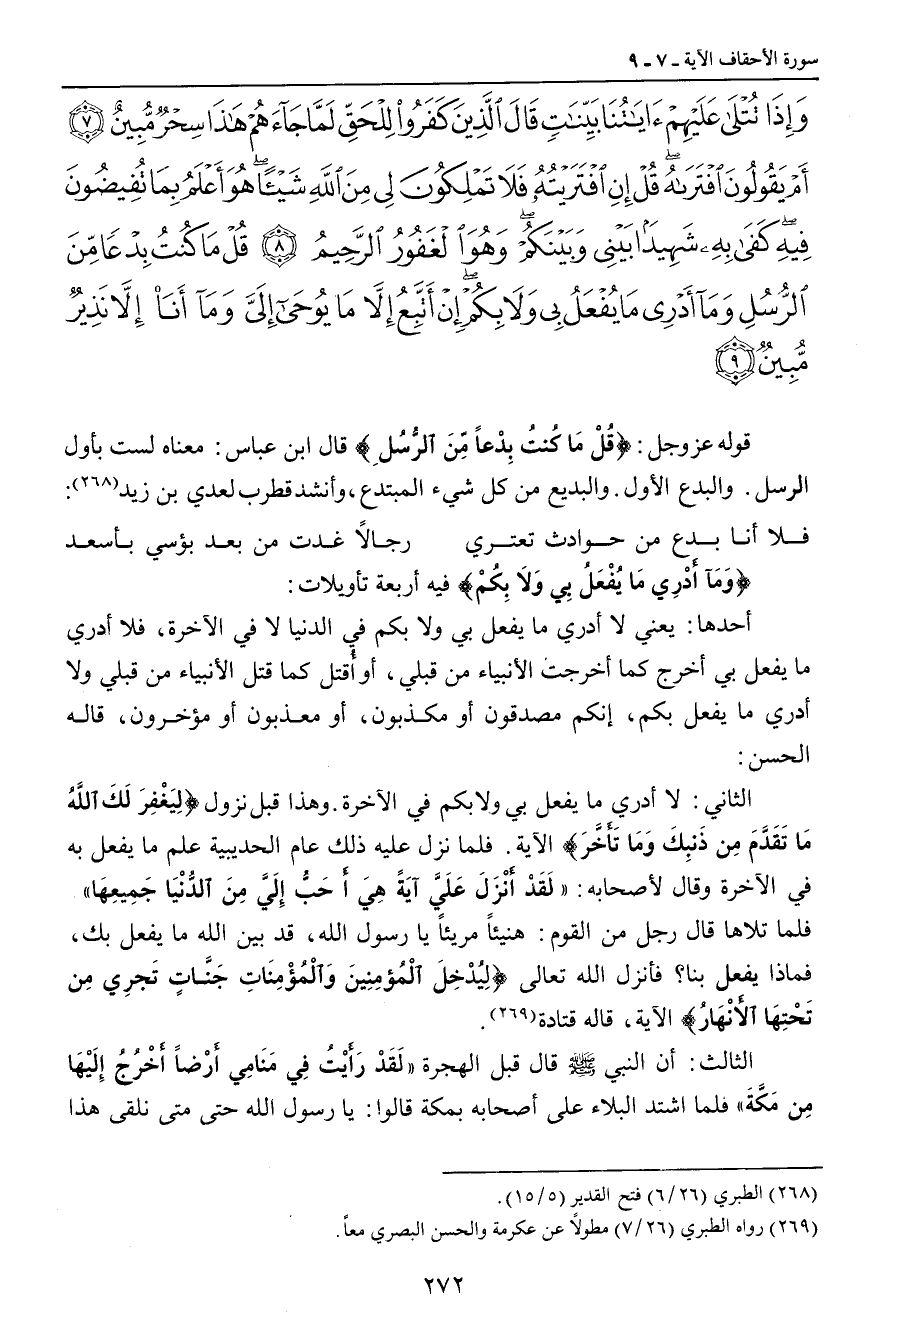 سورة الأحقاف الآية ـ ٧ ـ ٩
وَإِذَا تُتْلَىٰ عَلَيْهِمْ ءَايَٰتُنَا بَيِّنَٰتٍ قَالَ ٱلَّذِينَ كَفَرُوا۟ لِلْحَقِّ لَمَّا جَآءَهُمْ هَٰذَا سِحْرٌ مُّبِينٌ ﴿٧﴾
أَمْ يَقُولُونَ ٱفْتَرَىٰهُ ۖ قُلْ إِنِ ٱفْتَرَيْتُهُۥ فَلَا تَمْلِكُونَ لِى مِنَ ٱللَّهِ شَيْـًٔا ۖ هُوَ أَعْلَمُ بِمَا تُفِيضُونَ
فِيهِ ۖ كَفَىٰ بِهِۦ شَهِيدًۢا بَيْنِى وَبَيْنَكُمْ ۖ وَهُوَ ٱلْغَفُورُ ٱلرَّحِيمُ ﴿٨﴾ قُلْ مَا كُنتُ بِدْعًا مِّنَ
ٱلرُّسُلِ وَمَآ أَدْرِى مَا يُفْعَلُ بِى وَلَا بِكُمْ ۖ إِنْ أَتَّبِعُ إِلَّا مَا يُوحَىٰٓ إِلَىَّ وَمَآ أَنَا۠ إِلَّا نَذِيرٌ
مُّبِينٌ ﴿٩﴾
قوله عز وجل: ﴿قُلْ مَا كُنتُ بِدْعاً مِّنَ ٱلرُّسُلِ﴾ قال ابن عباس: معناه لست بأول
الرسل. والبدع الأول. والبديع من كل شيء المبتدع، وأنشد قطرب لعدي بن زيد(٢٦٨):
فـلا أنـا بـدع من حـوادث تعتـري رجـالاً غـدت من بعـد بؤسي بـأسعـد
﴿وَمَآ أَدْرِي مَا يُفْعَلُ بِي وَلَا بِكُمْ﴾ فيه أربعة تأويلات:
أحدها: يعني لا أدري ما يفعل بي ولا بكم في الدنيا لا في الآخرة، فلا أدري
ما يفعل بي أخرج كما أخرجت الأنبياء من قبلي، أو أُقتل كما قتل الأنبياء من قبلي ولا
أدري ما يفعل بكم، إنكم مصدقون أو مكـذبون، أو معـذبون أو مؤخـرون، قالـه
الحسن:
الثاني: لا أدري ما يفعل بي ولا بكم في الآخرة. وهذا قبل نزول ﴿لِيَغْفِرَ لَكَ ٱللَّهُ
مَا تَقَدَّمَ مِن ذَنبِكَ وَمَا تَأَخَّرَ﴾ الآية. فلما نزل عليه ذلك عام الحديبية علم ما يفعل به
في الآخرة وقال لأصحابه: « لَقَدْ أُنْزِلَ عَلَيَّ آيَةٌ هِيَ أَ حَبُّ إِلَيَّ مِنَ ٱلدُّنْيَا جَمِيعِهَا»
فلما تلاها قال رجل من القوم: هنيئاً مريئاً يا رسول الله، قد بين الله ما يفعل بك،
فماذا يفعل بنا؟ فأنزل الله تعالى ﴿لِيُدْخِلَ ٱلْمُؤْمِنِينَ وَٱلْمُؤْمِنَاتِ جَنَّـاتٍ تَجرِي مِن
تَحْتِهَا ٱلأَنْهَارُ﴾ الآية، قاله قتادة(٢٦٩).
الثالث: أن النبي ﷺ قال قبل الهجرة «لَقَدْ رَأَيْتُ فِي مَنَامِي أَرْضاً أَخْرُجُ إِلَيْهَا
مِن مَكَّةَ» فلما اشتد البلاء على أصحابه بمكة قالوا: يا رسول الله حتى متى نلقى هذا
(٢٦٨) الطبري (٦/٢٦) فتح القدير (١٥/٥).
(٢٦٩) رواه الطبري (٧/٢٦) مطولاً عن عكرمة والحسن البصري معاً.
٢٧٢